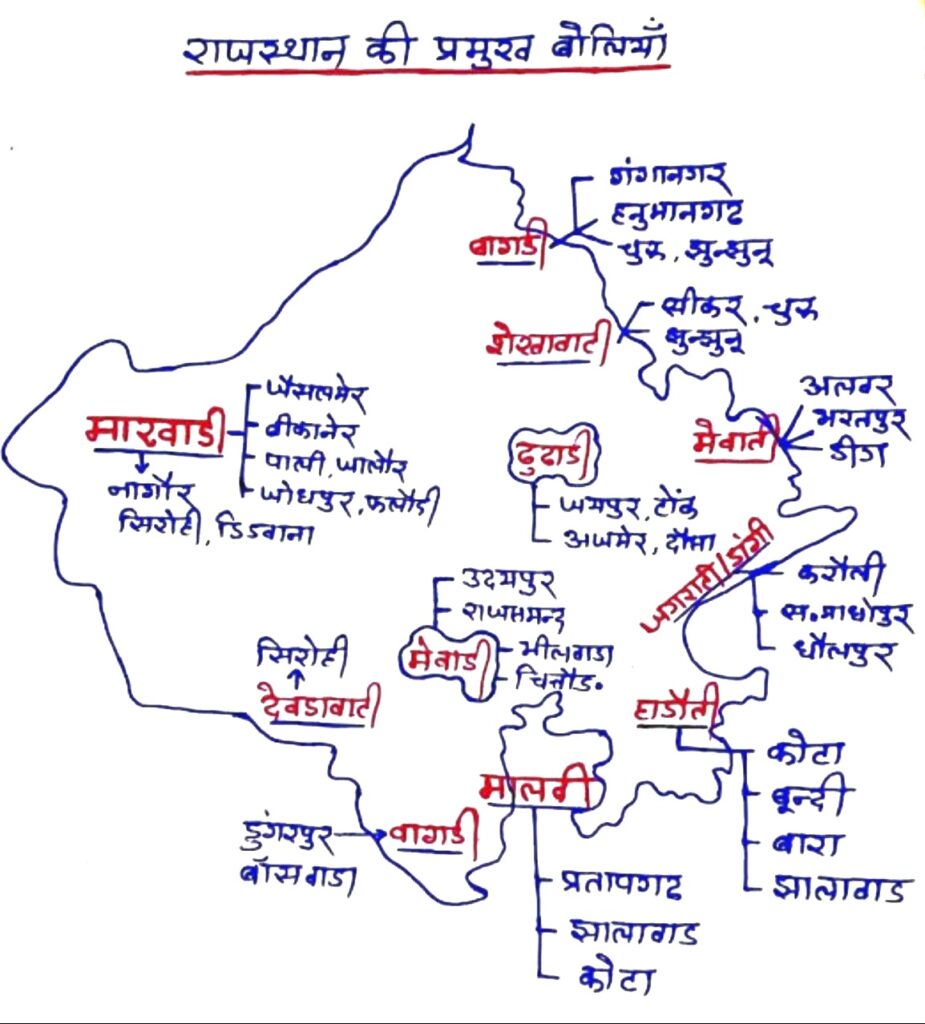 राजस्थान की प्रमुख बोलियाँ
बागडी
गंगानगर
हनुमानगढ
चुरू, झुन्झुनू
शेखावाटी
सीकर, चुरू
झुन्झुनू
मारवाडी
जैसलमेर
बीकानेर
पाली, जालौर
जोधपुर, फलौदी
नागौर
सिरोही, डिडवाना
ढुढाडी
जयपुर, टोंक
अजमेर, दौसा
मेवाती
अलवर
भरतपुर
डीग
जगराती/डांगी
करौली
स.माधोपुर
धौलपुर
मेवाडी
उदयपुर
राजसमन्द
भीलवाडा
चित्तौड.
सिरोही
देवडावाटी
हाडौती
कोटा
बून्दी
बारा
झालावाड
मालवी
प्रतापगढ
झालावाड
कोटा
वागडी
डुंगरपुर
बाँसवाडा